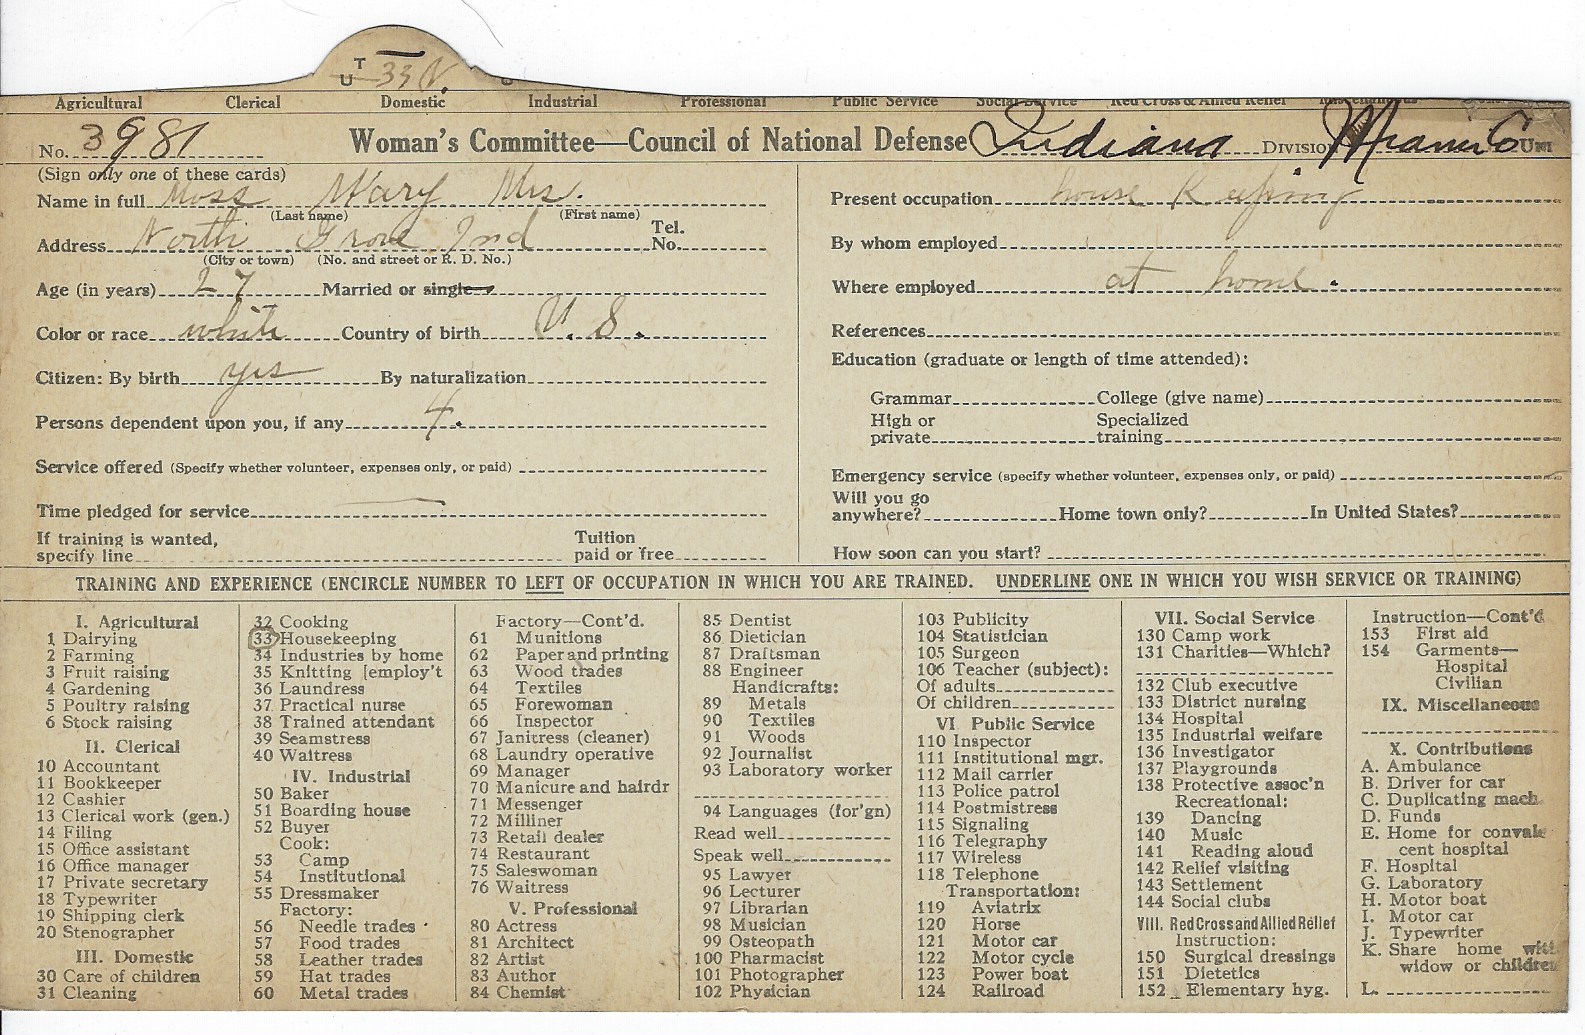 T
U 33 N.
Agricultural Clerical Domestic Industrial Professional Public Service Social Service Red Cross & Allied Relief Miscellaneous
No. 3981 Woman's Committee—Council of National Defense Indiana Division Miami Co Unit
(Sign only one of these cards)
Name in full Moss Mary Mrs.
(Last name) (First name)
Address North Grove Ind Tel. No.
(City or town) (No. and street or R. D. No.)
Age (in years) 27 Married or single
Color or race white Country of birth U. S.
Citizen: By birth yes By naturalization
Persons dependent upon you, if any 4.
Service offered (Specify whether volunteer, expenses only, or paid)
Time pledged for service
If training is wanted, specify line Tuition paid or free
Present occupation house Keeping
By whom employed
Where employed at home.
References
Education (graduate or length of time attended):
Grammar College (give name)
High or private Specialized training
Emergency service (specify whether volunteer, expenses only, or paid)
Will you go anywhere? Home town only? In United States?
How soon can you start?
TRAINING AND EXPERIENCE (ENCIRCLE NUMBER TO LEFT OF OCCUPATION IN WHICH YOU ARE TRAINED. UNDERLINE ONE IN WHICH YOU WISH SERVICE OR TRAINING)
I. Agricultural
1 Dairying
2 Farming
3 Fruit raising
4 Gardening
5 Poultry raising
6 Stock raising
II. Clerical
10 Accountant
11 Bookkeeper
12 Cashier
13 Clerical work (gen.)
14 Filing
15 Office assistant
16 Office manager
17 Private secretary
18 Typewriter
19 Shipping clerk
20 Stenographer
III. Domestic
30 Care of children
31 Cleaning
32 Cooking
33 Housekeeping
34 Industries by home
35 Knitting [employ't
36 Laundress
37 Practical nurse
38 Trained attendant
39 Seamstress
40 Waitress
IV. Industrial
50 Baker
51 Boarding house
52 Buyer
Cook:
53 Camp
54 Institutional
55 Dressmaker
Factory:
56 Needle trades
57 Food trades
58 Leather trades
59 Hat trades
60 Metal trades
Factory—Cont'd.
61 Munitions
62 Paper and printing
63 Wood trades
64 Textiles
65 Forewoman
66 Inspector
67 Janitress (cleaner)
68 Laundry operative
69 Manager
70 Manicure and hairdr
71 Messenger
72 Milliner
73 Retail dealer
74 Restaurant
75 Saleswoman
76 Waitress
V. Professional
80 Actress
81 Architect
82 Artist
83 Author
84 Chemist
85 Dentist
86 Dietician
87 Draftsman
88 Engineer
Handicrafts:
89 Metals
90 Textiles
91 Woods
92 Journalist
93 Laboratory worker
94 Languages (for'gn)
Read well
Speak well
95 Lawyer
96 Lecturer
97 Librarian
98 Musician
99 Osteopath
100 Pharmacist
101 Photographer
102 Physician
103 Publicity
104 Statistician
105 Surgeon
106 Teacher (subject):
Of adults
Of children
VI Public Service
110 Inspector
111 Institutional mgr.
112 Mail carrier
113 Police patrol
114 Postmistress
115 Signaling
116 Telegraphy
117 Wireless
118 Telephone
Transportation:
119 Aviatrix
120 Horse
121 Motor car
122 Motor cycle
123 Power boat
124 Railroad
VII. Social Service
130 Camp work
131 Charities—Which?
132 Club executive
133 District nursing
134 Hospital
135 Industrial welfare
136 Investigator
137 Playgrounds
138 Protective assoc'n
Recreational:
139 Dancing
140 Music
141 Reading aloud
142 Relief visiting
143 Settlement
144 Social clubs
VIII. Red Cross and Allied Relief
Instruction:
150 Surgical dressings
151 Dietetics
152 Elementary hyg.
Instruction—Cont'd
153 First aid
154 Garments—
Hospital
Civilian
IX. Miscellaneous
X. Contributions
A. Ambulance
B. Driver for car
C. Duplicating mach.
D. Funds
E. Home for convale
cent hospital
F. Hospital
G. Laboratory
H. Motor boat
I. Motor car
J. Typewriter
K. Share home with
widow or children
L.